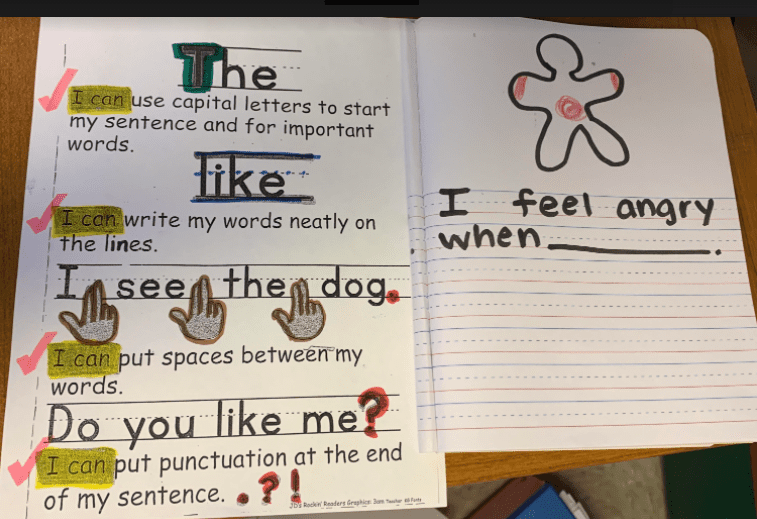 The
I can use capital letters to start
my sentence and for important
words.
like
I can write my words neatly on
the lines.
I see the dog.
I can put spaces between my
words.
Do you like me?
I can put punctuation at the end
of my sentence. . ? !
JD's Rockin' Readers Graphics:
I feel angry
when ____________.